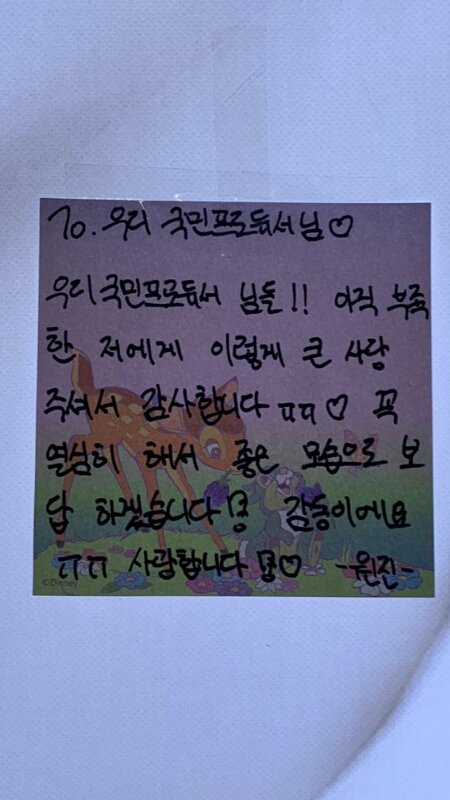 To. 우리 국민프로듀서님♡
우리 국민프로듀서 님들!! 아직 부족
한 저에게 이렇게 큰 사랑
주셔서 감사합니다 ㅠㅠ♡ 꼭
열심히 해서 좋은 모습으로 보
답 하겠습니다!! 감동이에요
ㅠㅠ 사랑합니다!!♡ -원진-
©Disney